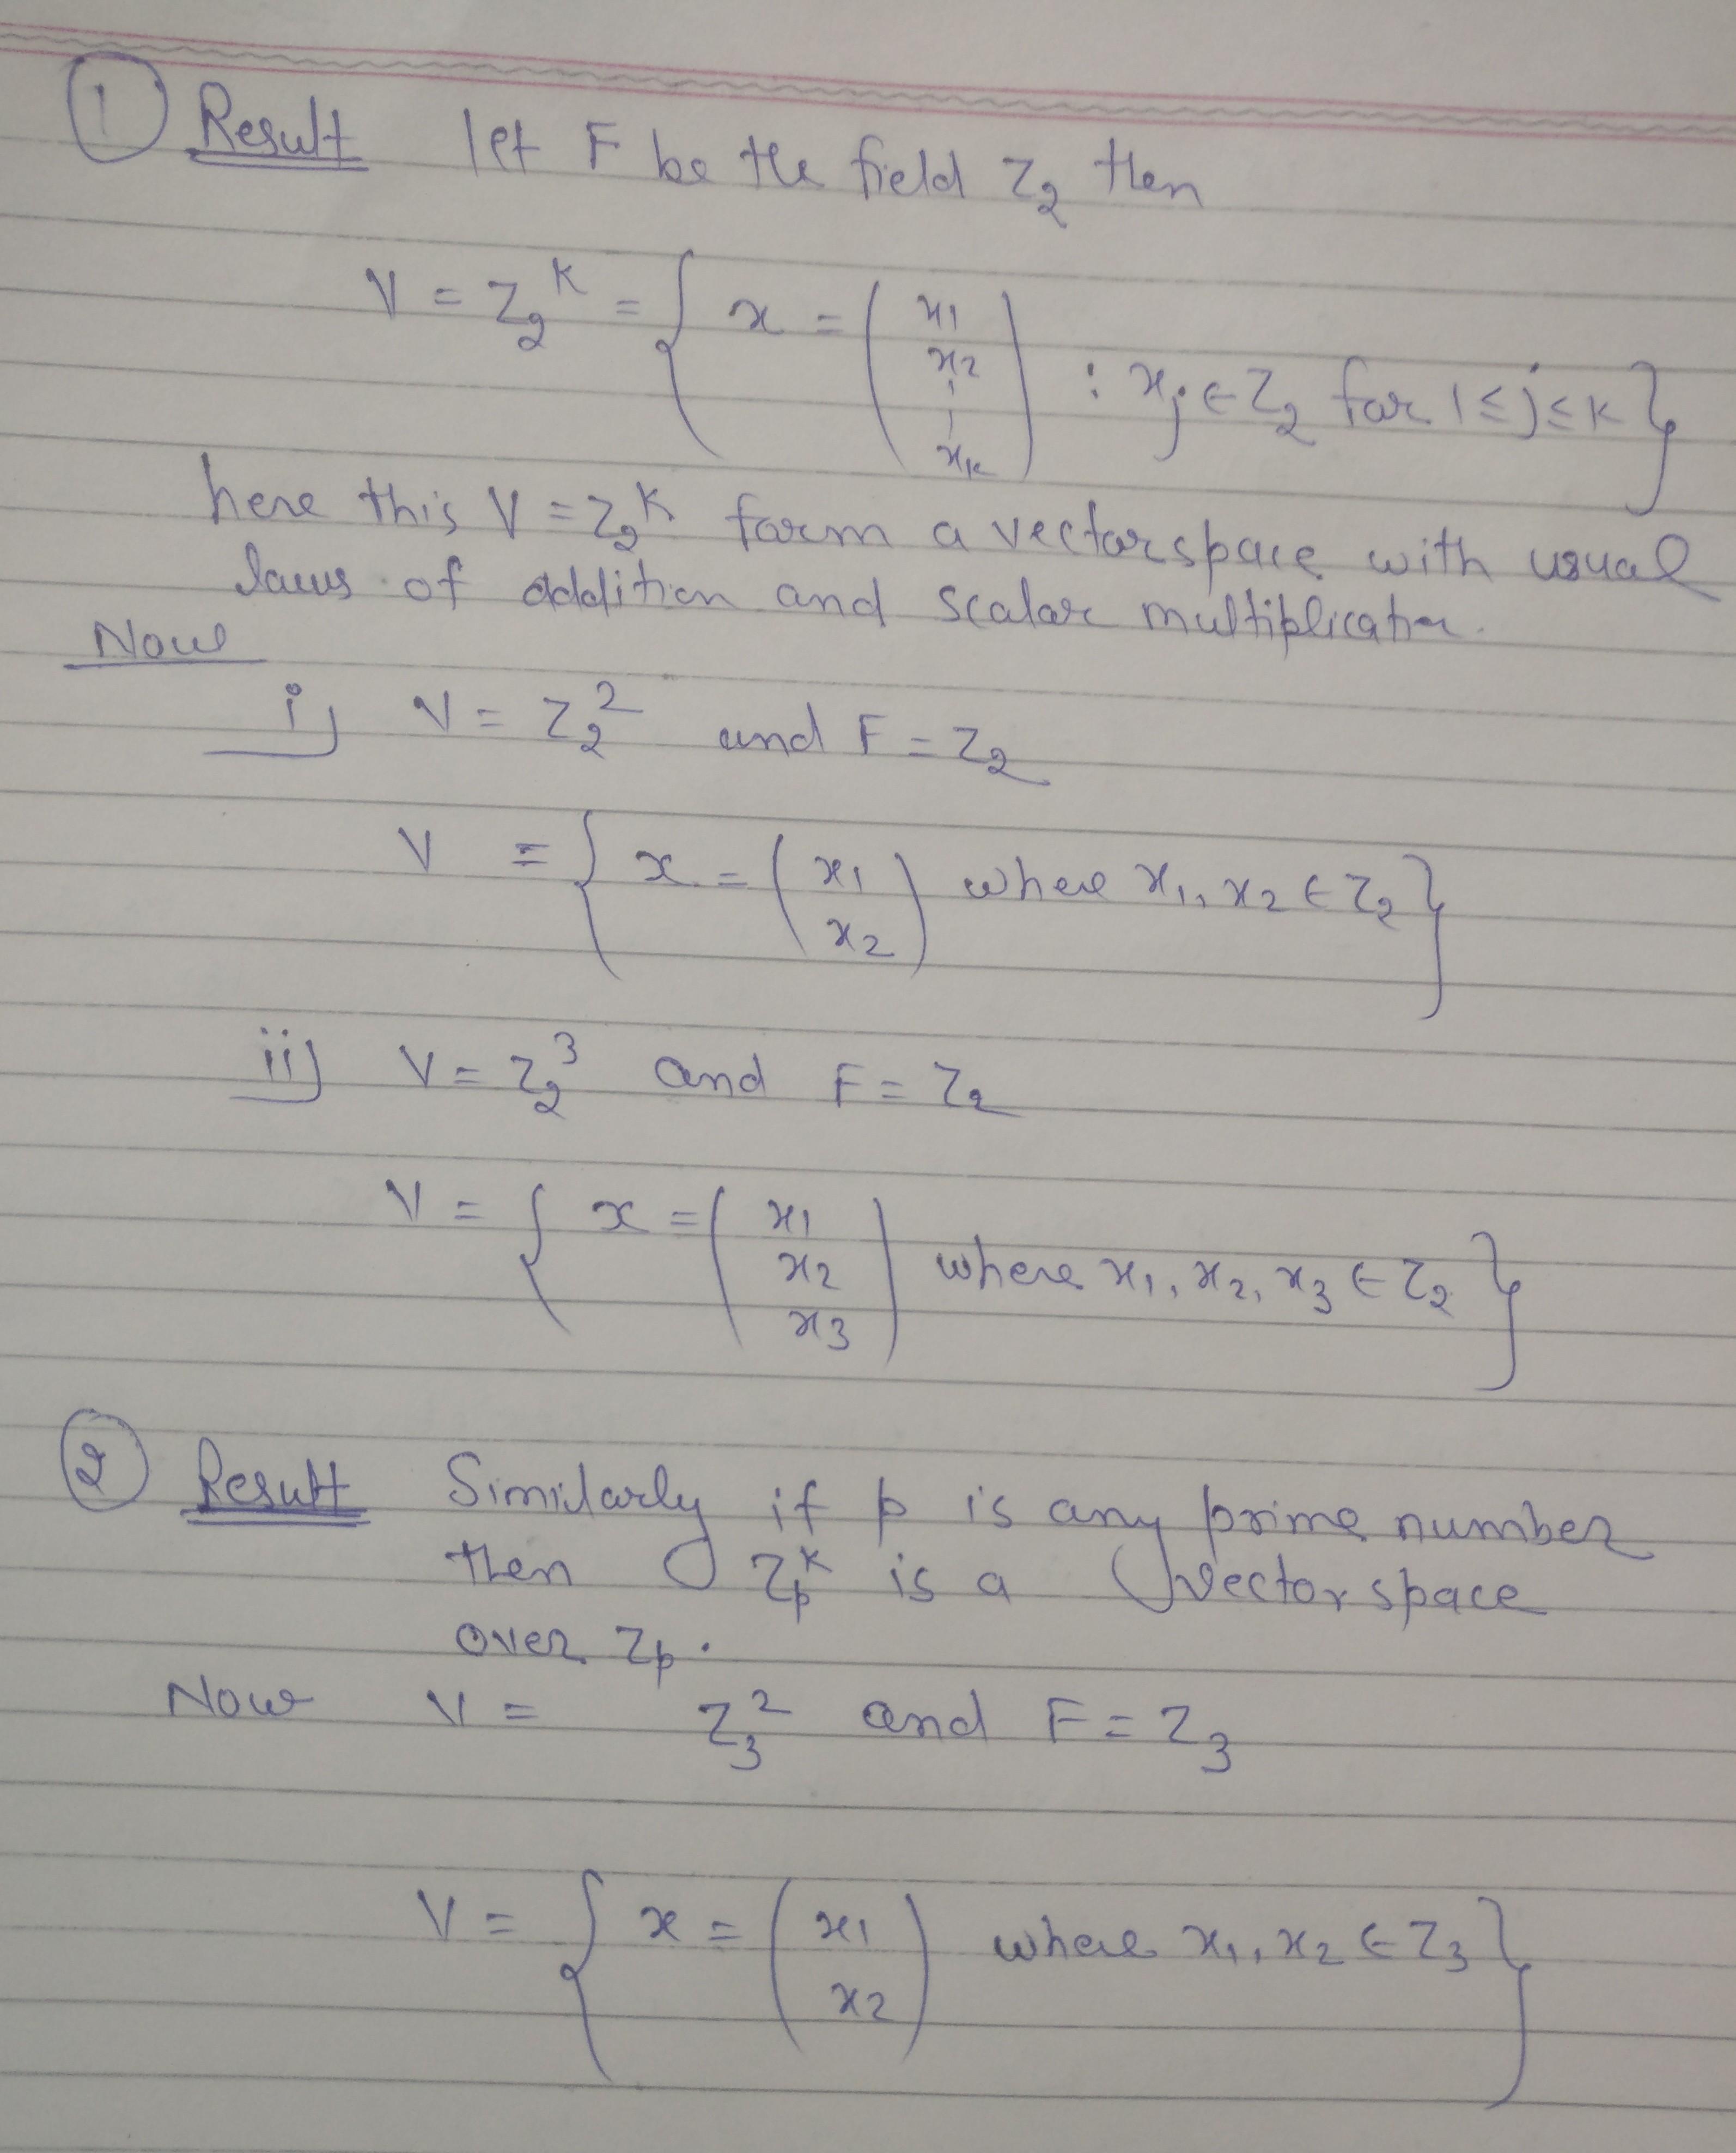 ① Result let F be the field Z₂ then
V = Z₂ᴷ = { x = ( x₁ x₂ ⋮ xₖ ) : xⱼ ∈ Z₂ for 1 ≤ j ≤ K }
here this V = Z₂ᴷ form a vectorspace with usual
laws of addition and scalar multiplication.
Now
i) V = Z₂² and F = Z₂
V = { x = ( x₁ x₂ ) where x₁, x₂ ∈ Z₂ }
ii) V = Z₂³ and F = Z₂
V = { x = ( x₁ x₂ x₃ ) where x₁, x₂, x₃ ∈ Z₂ }
② Result Similarly if p is any prime number
then Zₚᴷ is a vectorspace
over Zₚ.
Now V = Z₃² and F = Z₃
V = { x = ( x₁ x₂ ) where x₁, x₂ ∈ Z₃ }